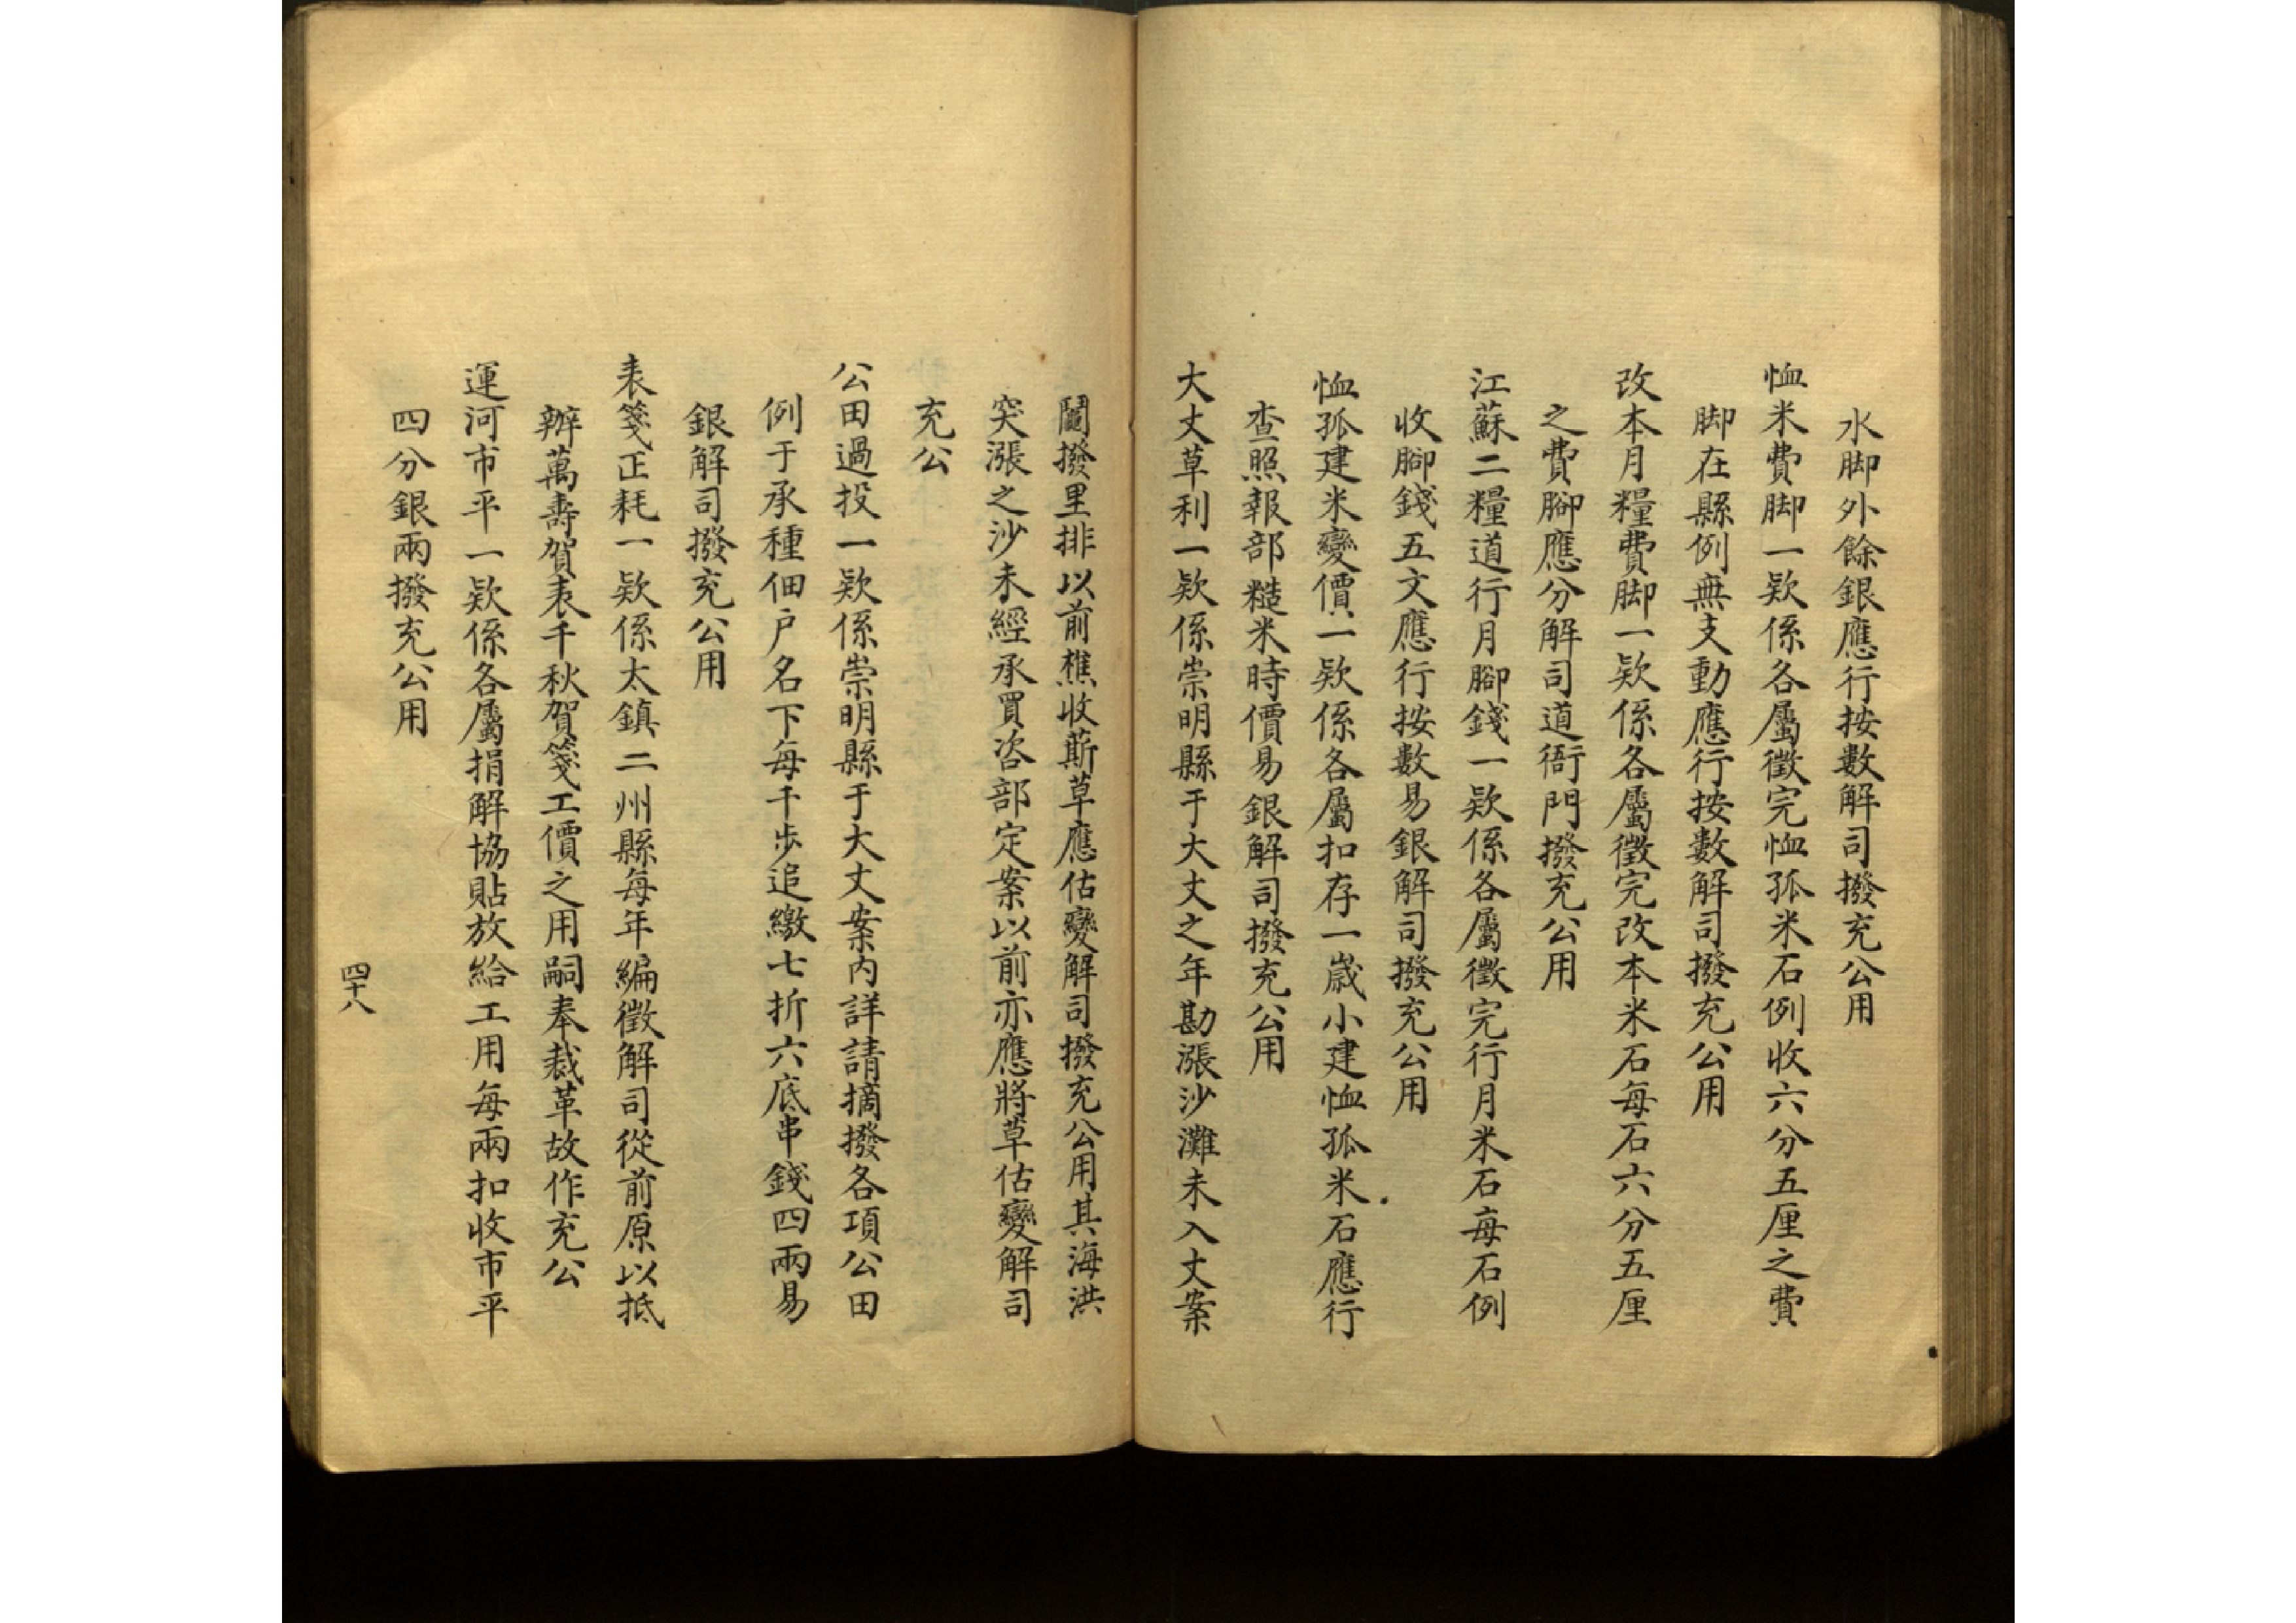 水脚外餘銀應行按數解司撥充公用
恤米費脚一欵係各屬徵完恤孤米石例收六分五厘之費
脚在縣例無支動應行按數解司撥充公用
改本月糧費脚一欵係各屬徵完改本米石每石六分五厘
之費腳應分解司道衙門撥充公用
江蘇二糧道行月腳錢一欵係各屬徵完行月米石每石例
收腳錢五文應行按數易銀解司撥充公用
恤孤建米變價一欵係各屬扣存一歲小建恤孤米石應行
查照報部糙米時價易銀解司撥充公用
大丈草利一欵係崇明縣于大丈之年勘漲沙灘未入丈案
鬮撥里排以前樵收蘄草應估變解司撥充公用其海洪
突漲之沙未經承買咨部定案以前亦應將草估變解司
充公
公田過投一欵係崇明縣于大丈案內詳請摘撥各項公田
例于承種佃户名下每千步追繳七折六底串錢四兩易
銀解司撥充公用
表箋正耗一欵係太鎮二州縣每年編徵解司從前原以抵
辦萬壽賀表千秋賀箋工價之用嗣奉裁革故作充公
運河市平一欵係各屬捐解協貼放給工用每兩扣收市平
四分銀兩撥充公用
四十八